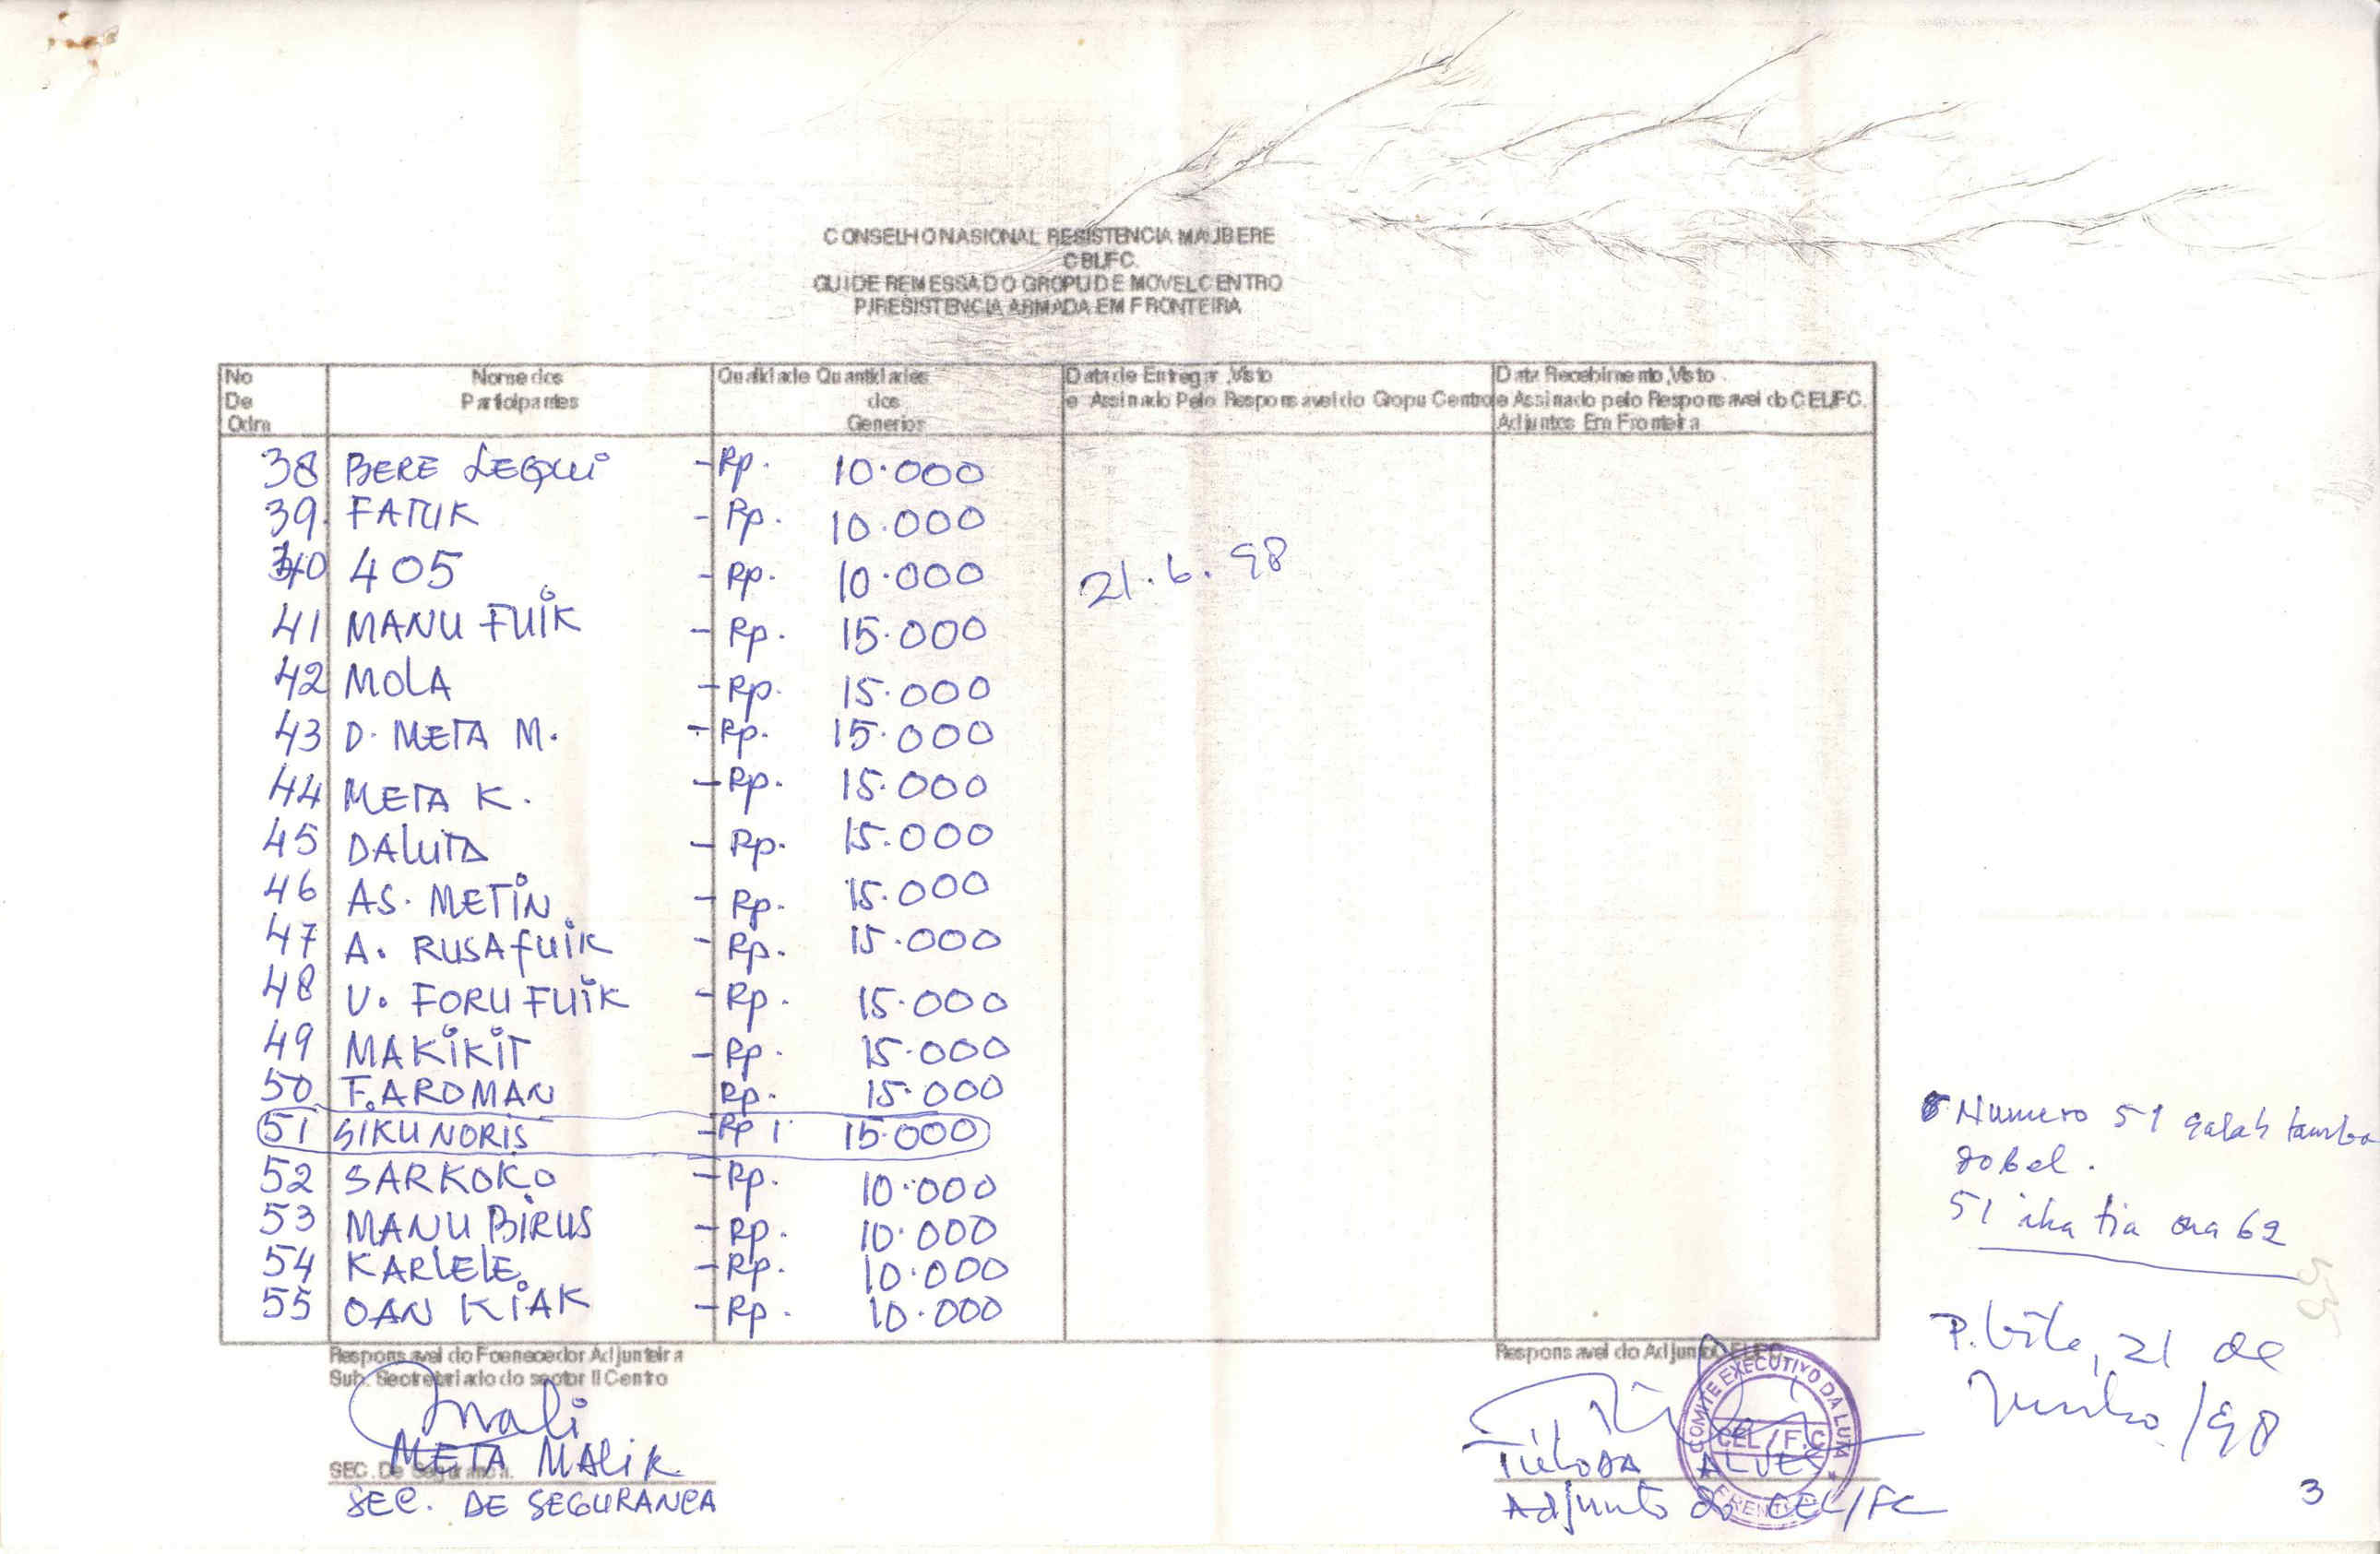 CONSELHO NASIONAL RESISTENCIA MAUBERE
CELFC.
GUIDE REMESSA DO GROPU DE MOVEL CENTRO
P/RESISTENCIA ARMADA EM FRONTEIRA
No De Odra
Nome dos Participantes
Qualidade Quantidades dos Generios
Data de Entegar ,Visto e Assinado Pelo Responsavel do Gropu Centro
Data Recebimento,Visto e Assinado pelo Responsavel do CEL/FC. Adjuntos Em Fronteira
38 BERE LEQUI -Rp. 10.000
39. FATUK -Rp. 10.000
40 405 -Rp. 10.000 21.6.98
41 MANU FUIK -Rp. 15.000
42 MOLA -Rp. 15.000
43 D. META M. -Rp. 15.000
44 META K. -Rp. 15.000
45 DALUTA -Rp. 15.000
46 AS. METIN -Rp. 15.000
47 A. RUSA FUIK -Rp. 15.000
48 U. FORU FUIK -Rp. 15.000
49 MAKIKIT -Rp. 15.000
50 F. AROMAN Rp. 15.000
51 SIKU NORIS -Rp 15.000
52 SARKOKO -Rp. 10.000
53 MANU BIRUS -Rp. 10.000
54 KARLELE -Rp. 10.000
55 OAN KIAK -Rp. 10.000
Numero 51 galah tamba
dobel.
51 iha tia ona 62
P. 21 de
Junho/98
Responsavel do Foenecedor Adjunteira
Sub. Secretariado do sector II Centro
Mali
META MALIK
SEC. De Seguranca.
SEC. DE SEGURANCA
Responsavel do Adjunto CEL/FC
COMITE EXECUTIVO DA LUTA
CEL/F.C
ALVES
Adjunto do CEL/FC
3